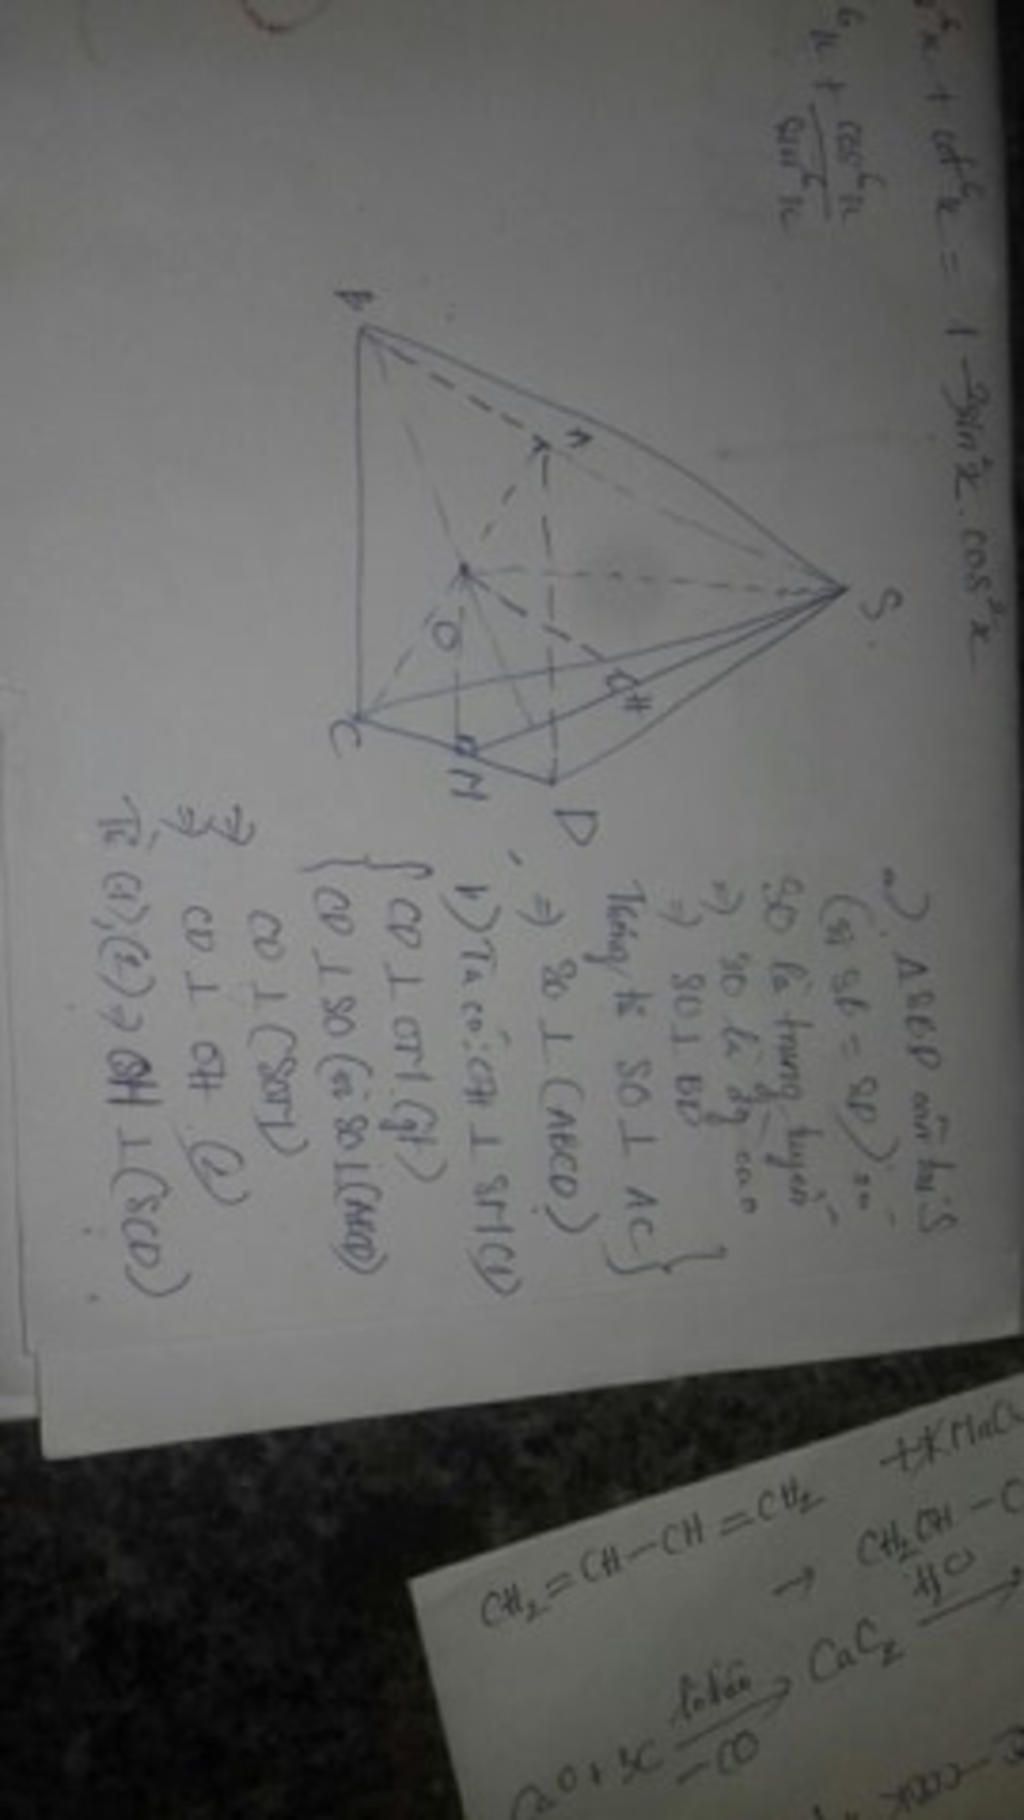 + cot⁶x = 1 - 3sin²x . cos²x
+ cos⁶x
sin⁶x
S
A
H
D
O
B
M
C
a) Δ SBD cân tại S
(vì SB = SD)
SO là trung tuyến
=) SO là đg cao
=) SO ⊥ BD
Tương tự SO ⊥ AC }
=) SO ⊥ (ABCD)
b) Ta có: OH ⊥ SM (1)
{ CD ⊥ OM (gt)
{ CD ⊥ SO (vì SO ⊥ (ABCD))
=) CD ⊥ (SOM)
=) CD ⊥ OH (2)
Từ (1), (2) => OH ⊥ (SCD)
CH₂=CH-CH=CH₂
+KMnO
→ CH₂CH - C
CaO + 3C lò điện → CaC₂ H₂O →
-CO